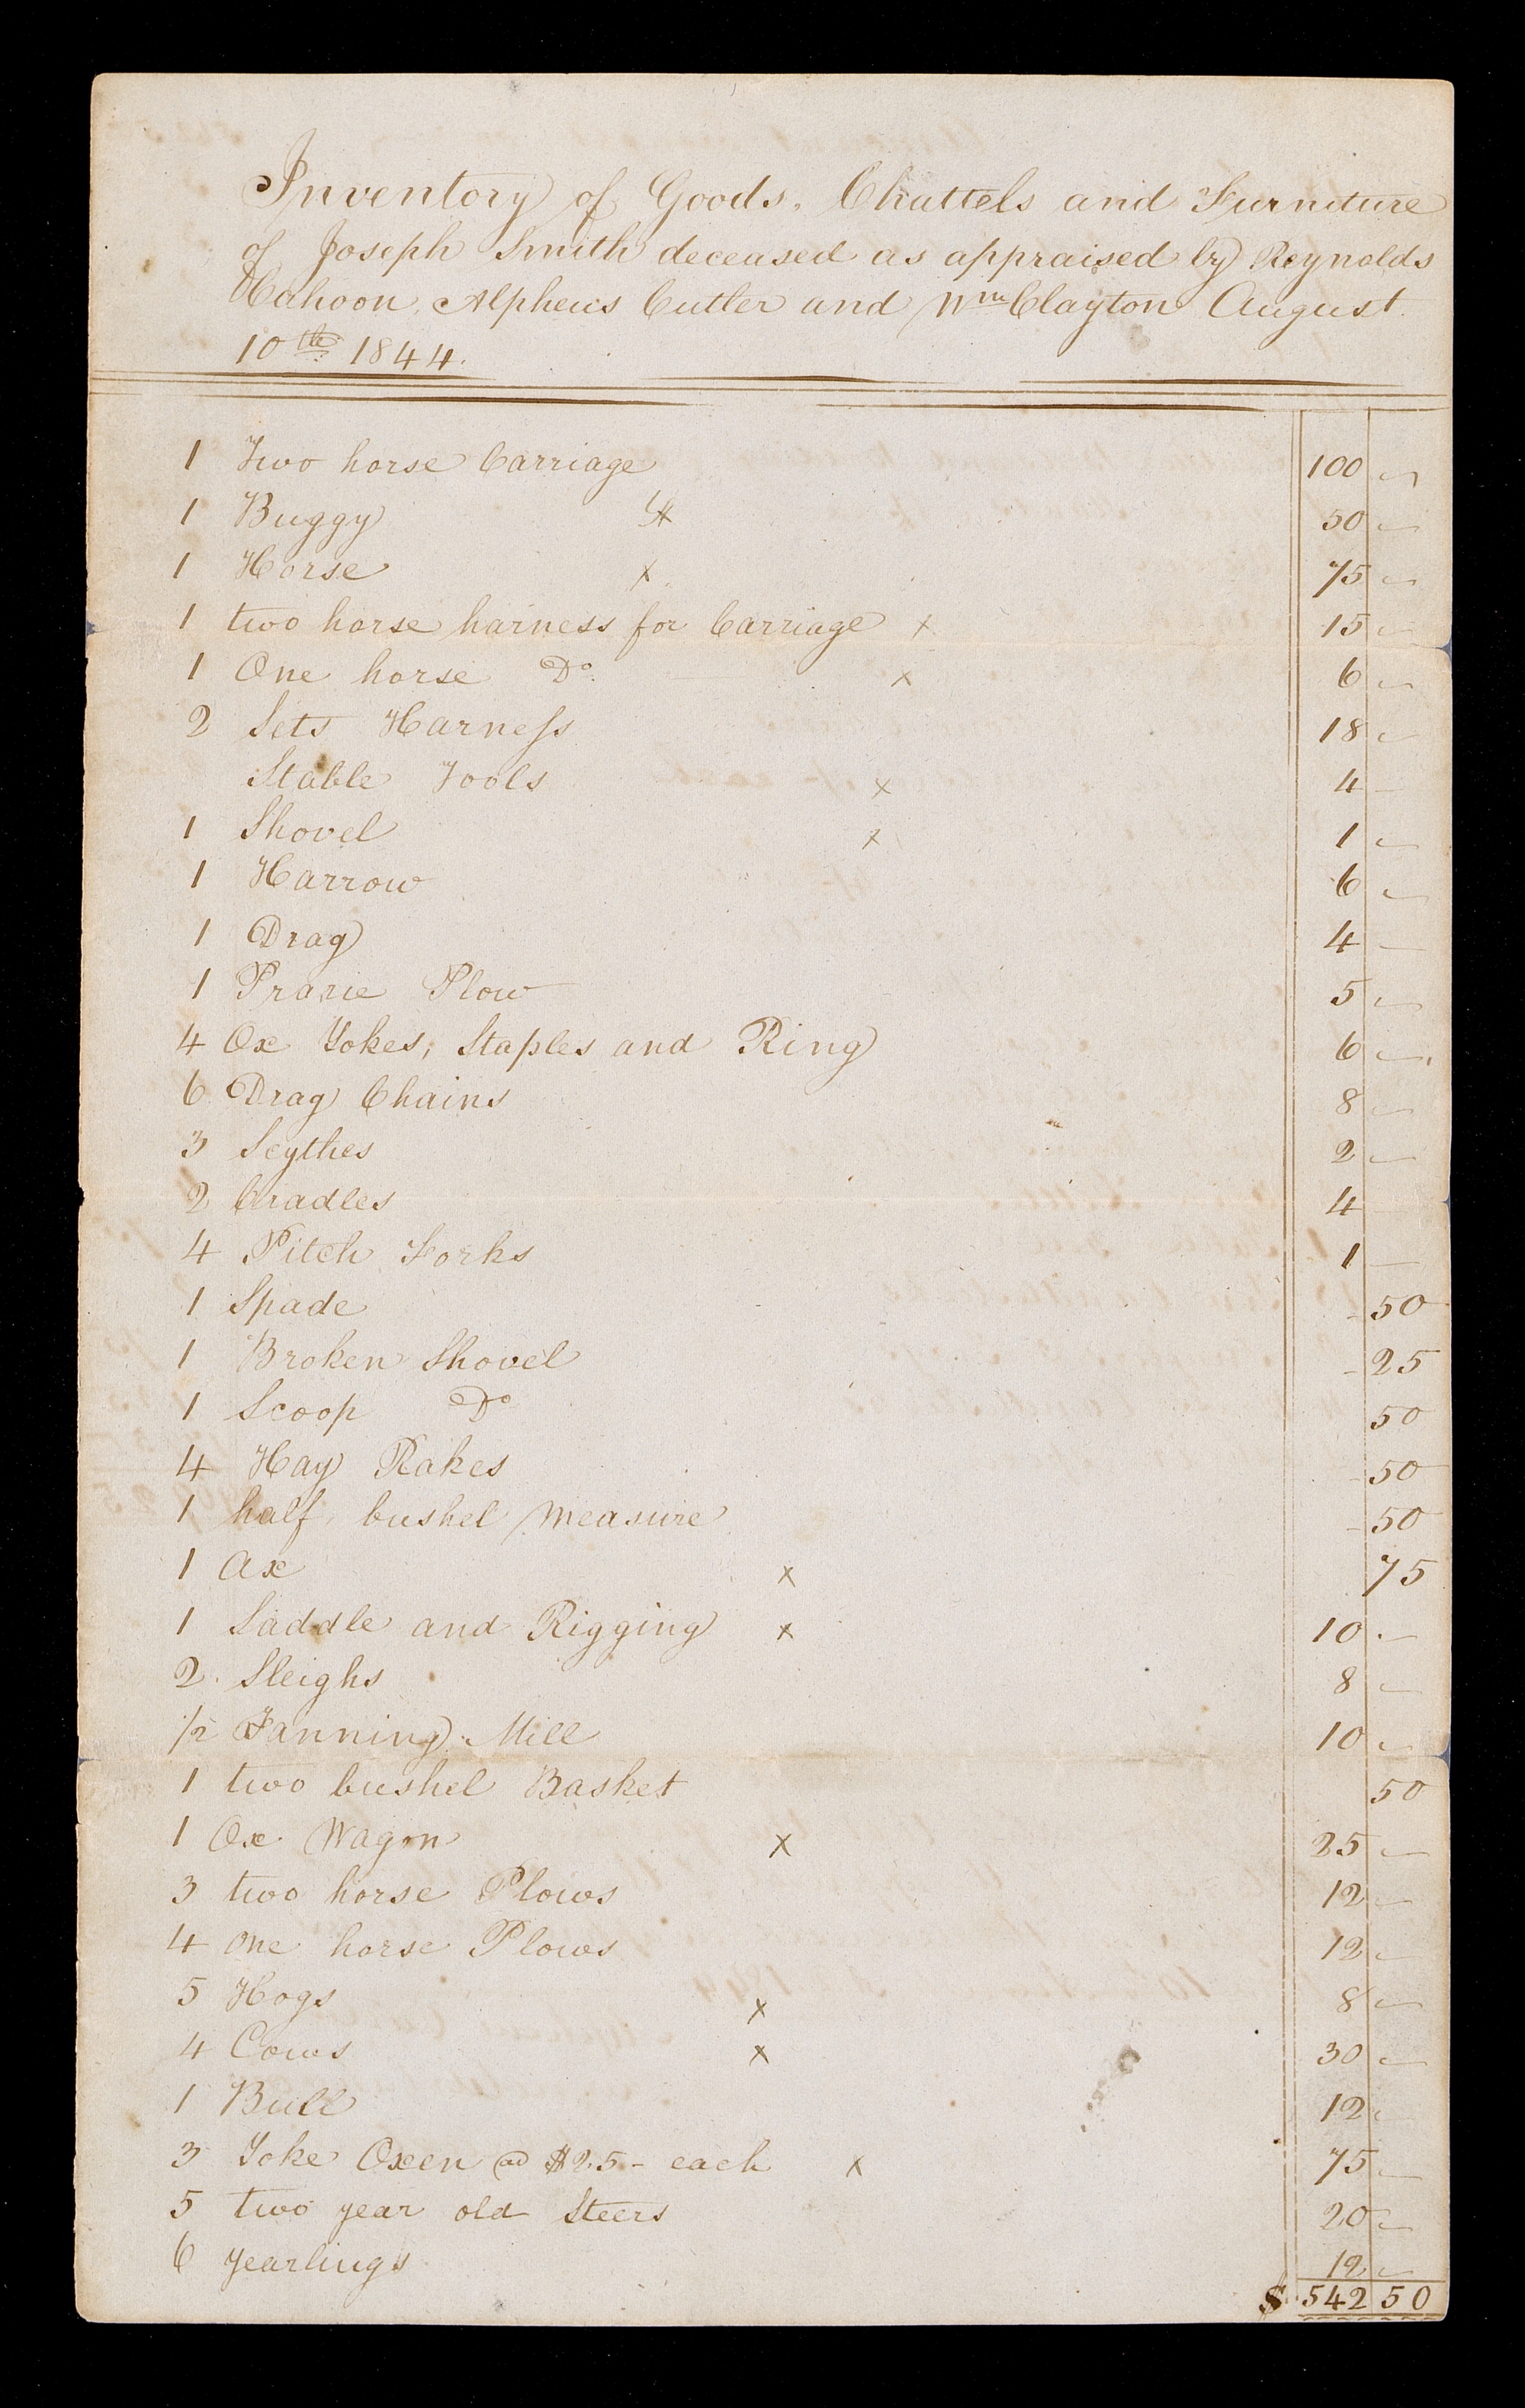 Inventory of Goods, Chattels and Furniture
of Joseph Smith deceased as appraised by Reynolds
Cahoon, Alpheus Cutler and Wm Clayton August
10th 1844.
1 Two horse Carriage 100 —
1 Buggy X 50 —
1 Horse X 75 —
1 two horse harness for Carriage X 15 —
1 One horse Do. X 6 —
2 Sets Harness 18 —
Stable Tools X 4 —
1 Shovel X 1 —
1 Harrow 6 —
1 Drag 4 —
1 Prarie Plow 5 —
4 Ox Yokes, Staples and Ring 6 —
6 Drag Chains 8 —
3 Scythes 2 —
2 Cradles 4
4 Pitch Forks 1 —
1 Spade - 50
1 Broken Shovel - 25
1 Scoop Do 50
4 Hay Rakes - 50
1 half bushel measure - 50
1 Ax X 75
1 Saddle and Rigging X 10 —
2 Sleighs 8 —
1/2 Fanning Mill 10 —
1 two bushel Basket 50
1 Ox Wagon X 25 —
3 two horse Plows 12 —
4 one horse Plows 12 —
5 Hogs X 8 —
4 Cows X 30 —
1 Bull 12 —
3 Yoke Oxen @ $25 - each X 75 —
5 two year old Steers 20 —
6 yearlings 12 —
$ 542 50